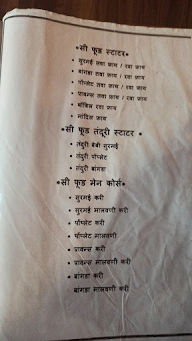 •सी फूड स्टाटर•
• सुरमई तवा फ्राय / रवा फ्राय
• बांगडा तवा फ्राय / रवा फ्राय
• पॉप्लेट तवा फ्राय / रवा फ्राय
• प्रावन्स तवा फ्राय / रवा फ्राय
• बोंबिल रवा फ्राय
• मांदिल फ्राय
•सी फूड तंदूरी स्टाटर •
• तंदुरी बेबी सुरमई
• तंदुरी पॉप्लेट
• तंदुरी बांगडा
•सी फूड मेन कोर्स•
• सुरमई करी
• सुरमई मालवणी करी
• पॉप्लेट करी
• पॉप्लेट मालवणी
• प्रावन्स करी
• प्रावन्स मालवणी करी
• बांगडा करी
बांगडा मालवणी करी